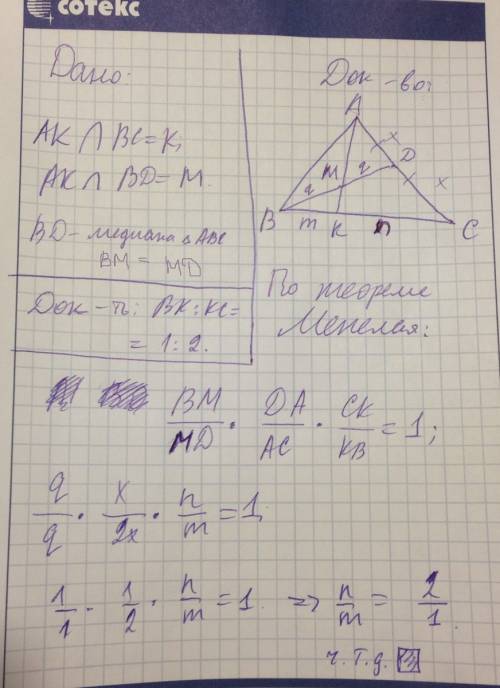 сотекс
Дано:
AK ∩ BC = K,
AK ∩ BD = M.
BD – медиана △ ABC
BM = MD
Док-ть: BK : KC =
= 1 : 2.
Док-во:
A
x
D
M q
q
x
B m K n C
По теореме
Менелая:
BM/MD · DA/AC · CK/KB = 1;
q/q · x/2x · n/m = 1
1/1 · 1/2 · n/m = 1 => n/m = 2/1.
ч.т.д.